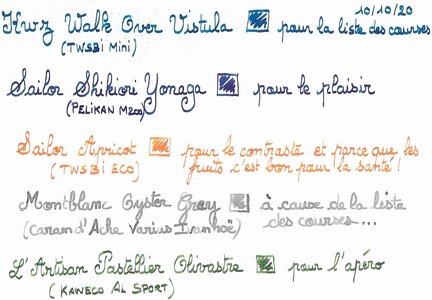 10/10/20
Kwz Walk Over Vistula pour la liste des courses
(TWSBi Mini)
Sailor Shikiori Yonaga pour le plaisir
(PELIKAN M200)
Sailor Apricot pour le contraste et parce que les
(TWSBi ECO) fruits c'est bon pour la santé !
Montblanc Oyster Grey à cause de la liste
(Caran d'Ache Varius Ivanhoë) des courses...
L'Artisan Pastellier Olivastre pour l'apéro
(KAWECO AL SPORT)